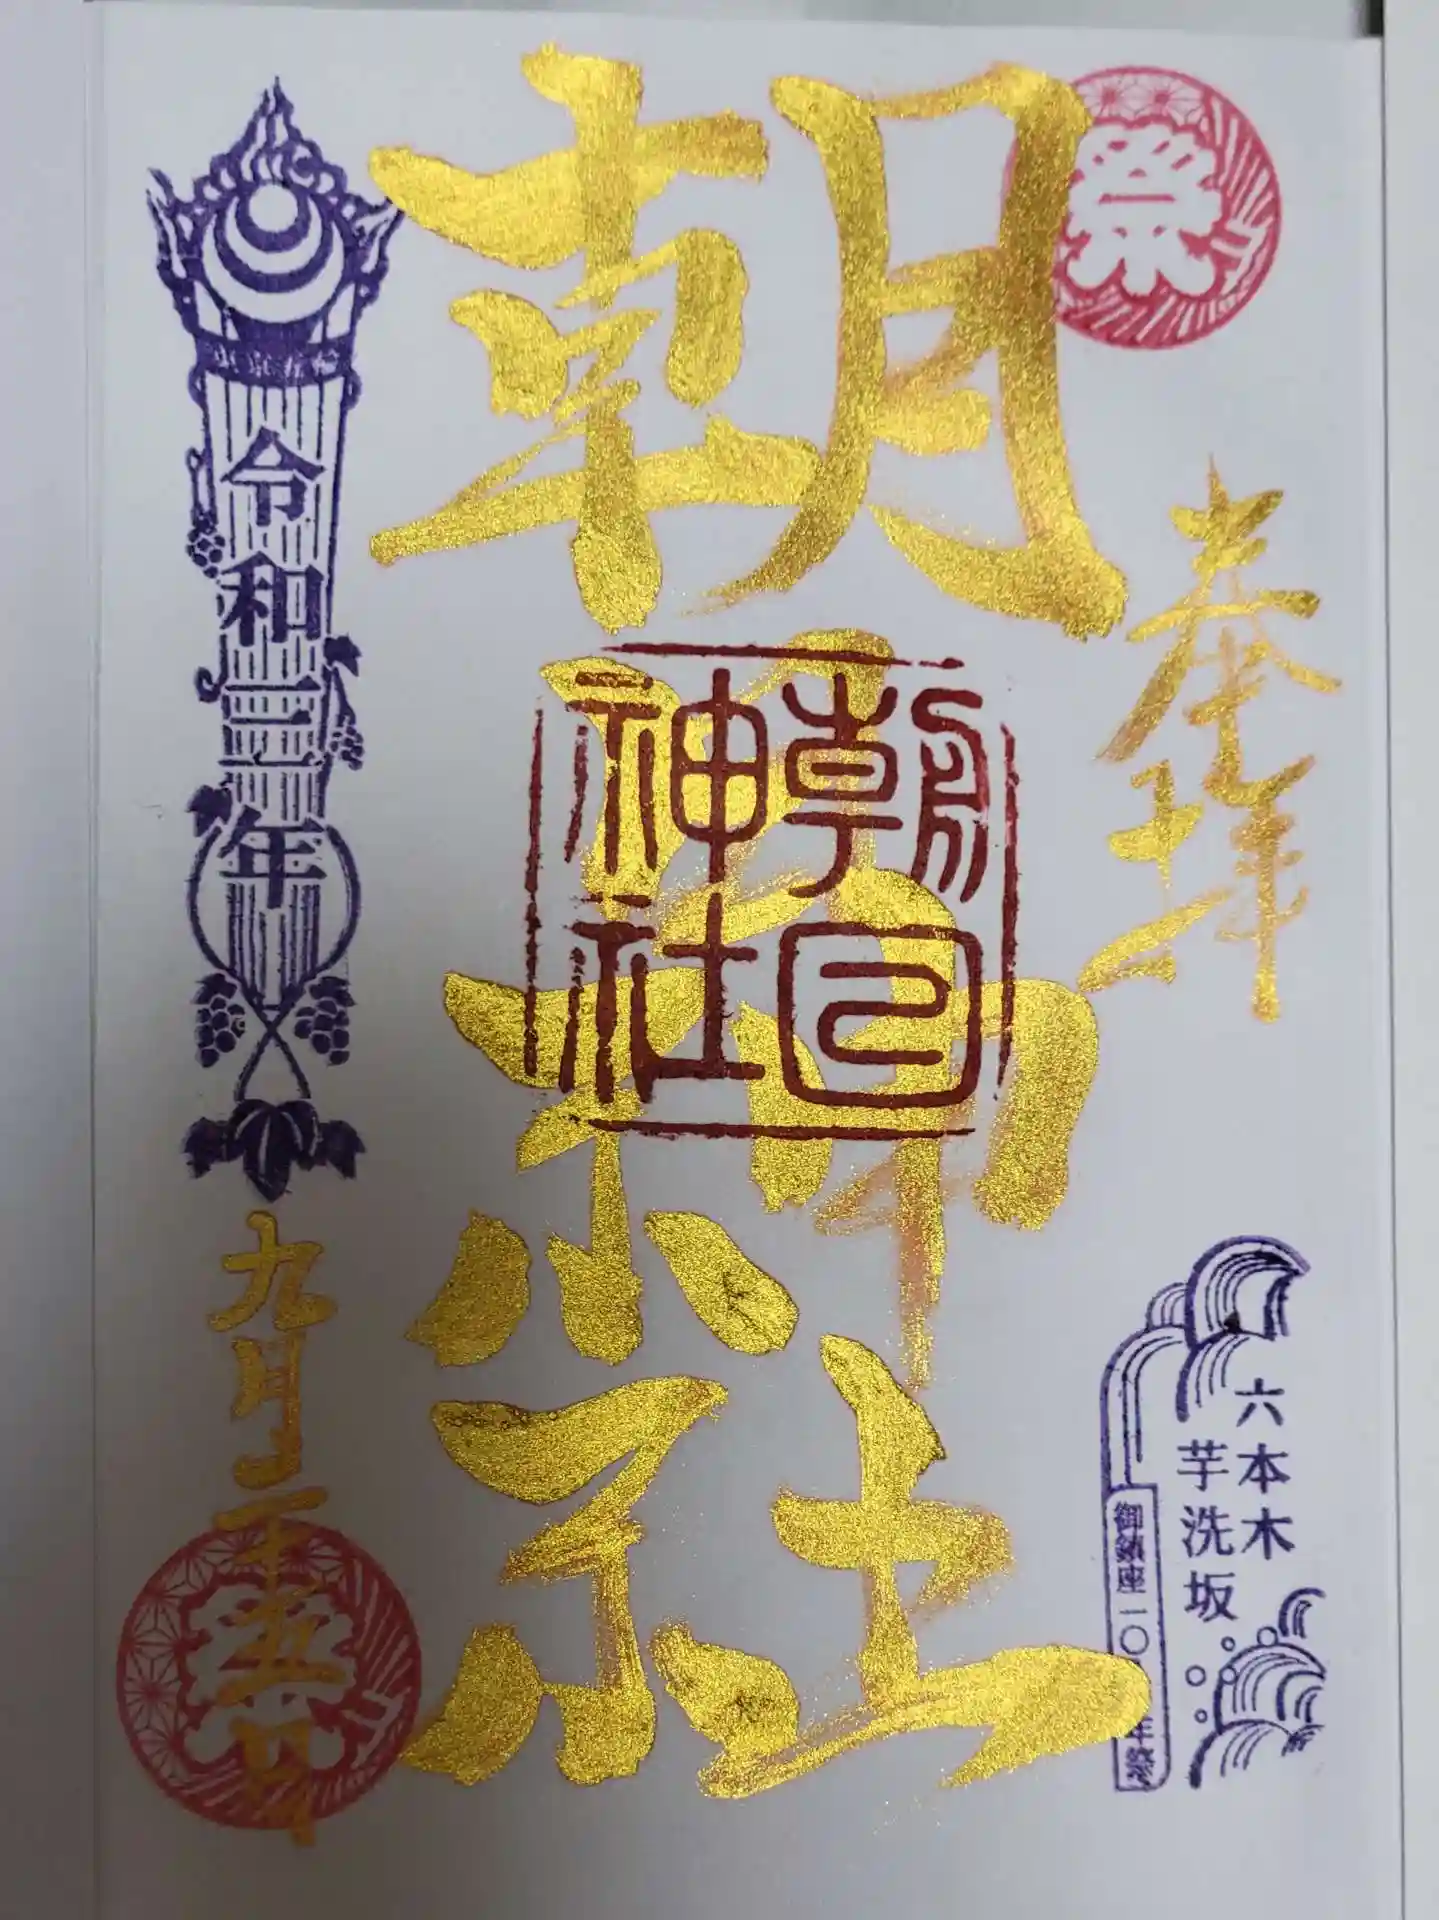 祭
奉拝
六本木
芋洗坂
御鎮座一〇
年祭
朝日神社
朝日
神社
令和三年
九月二十五日
祭